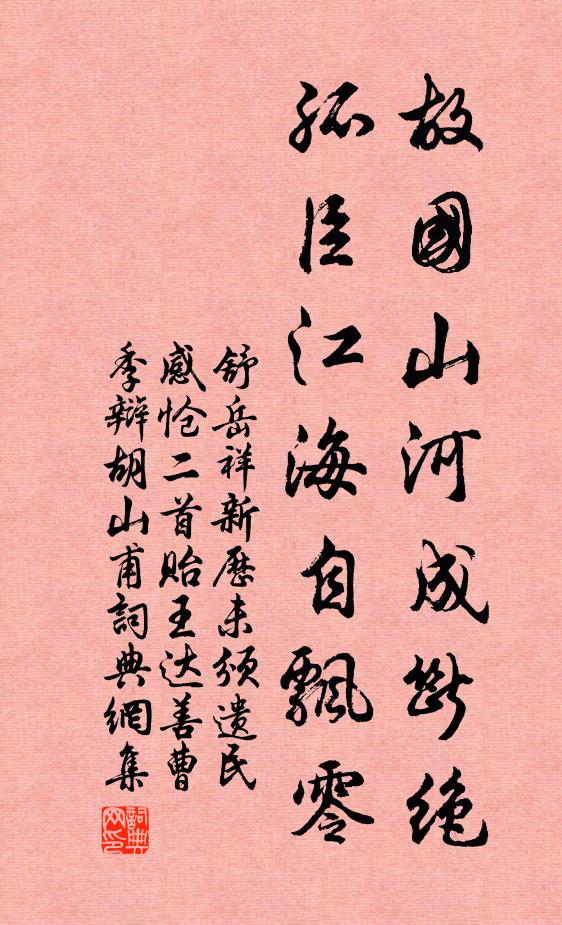 故國山河成斷絶
孤臣江海自飄零
舒岳祥新歷未頒遺民
感怆二首貽王达善曹
季辯胡山甫詞典網集
詞典网印